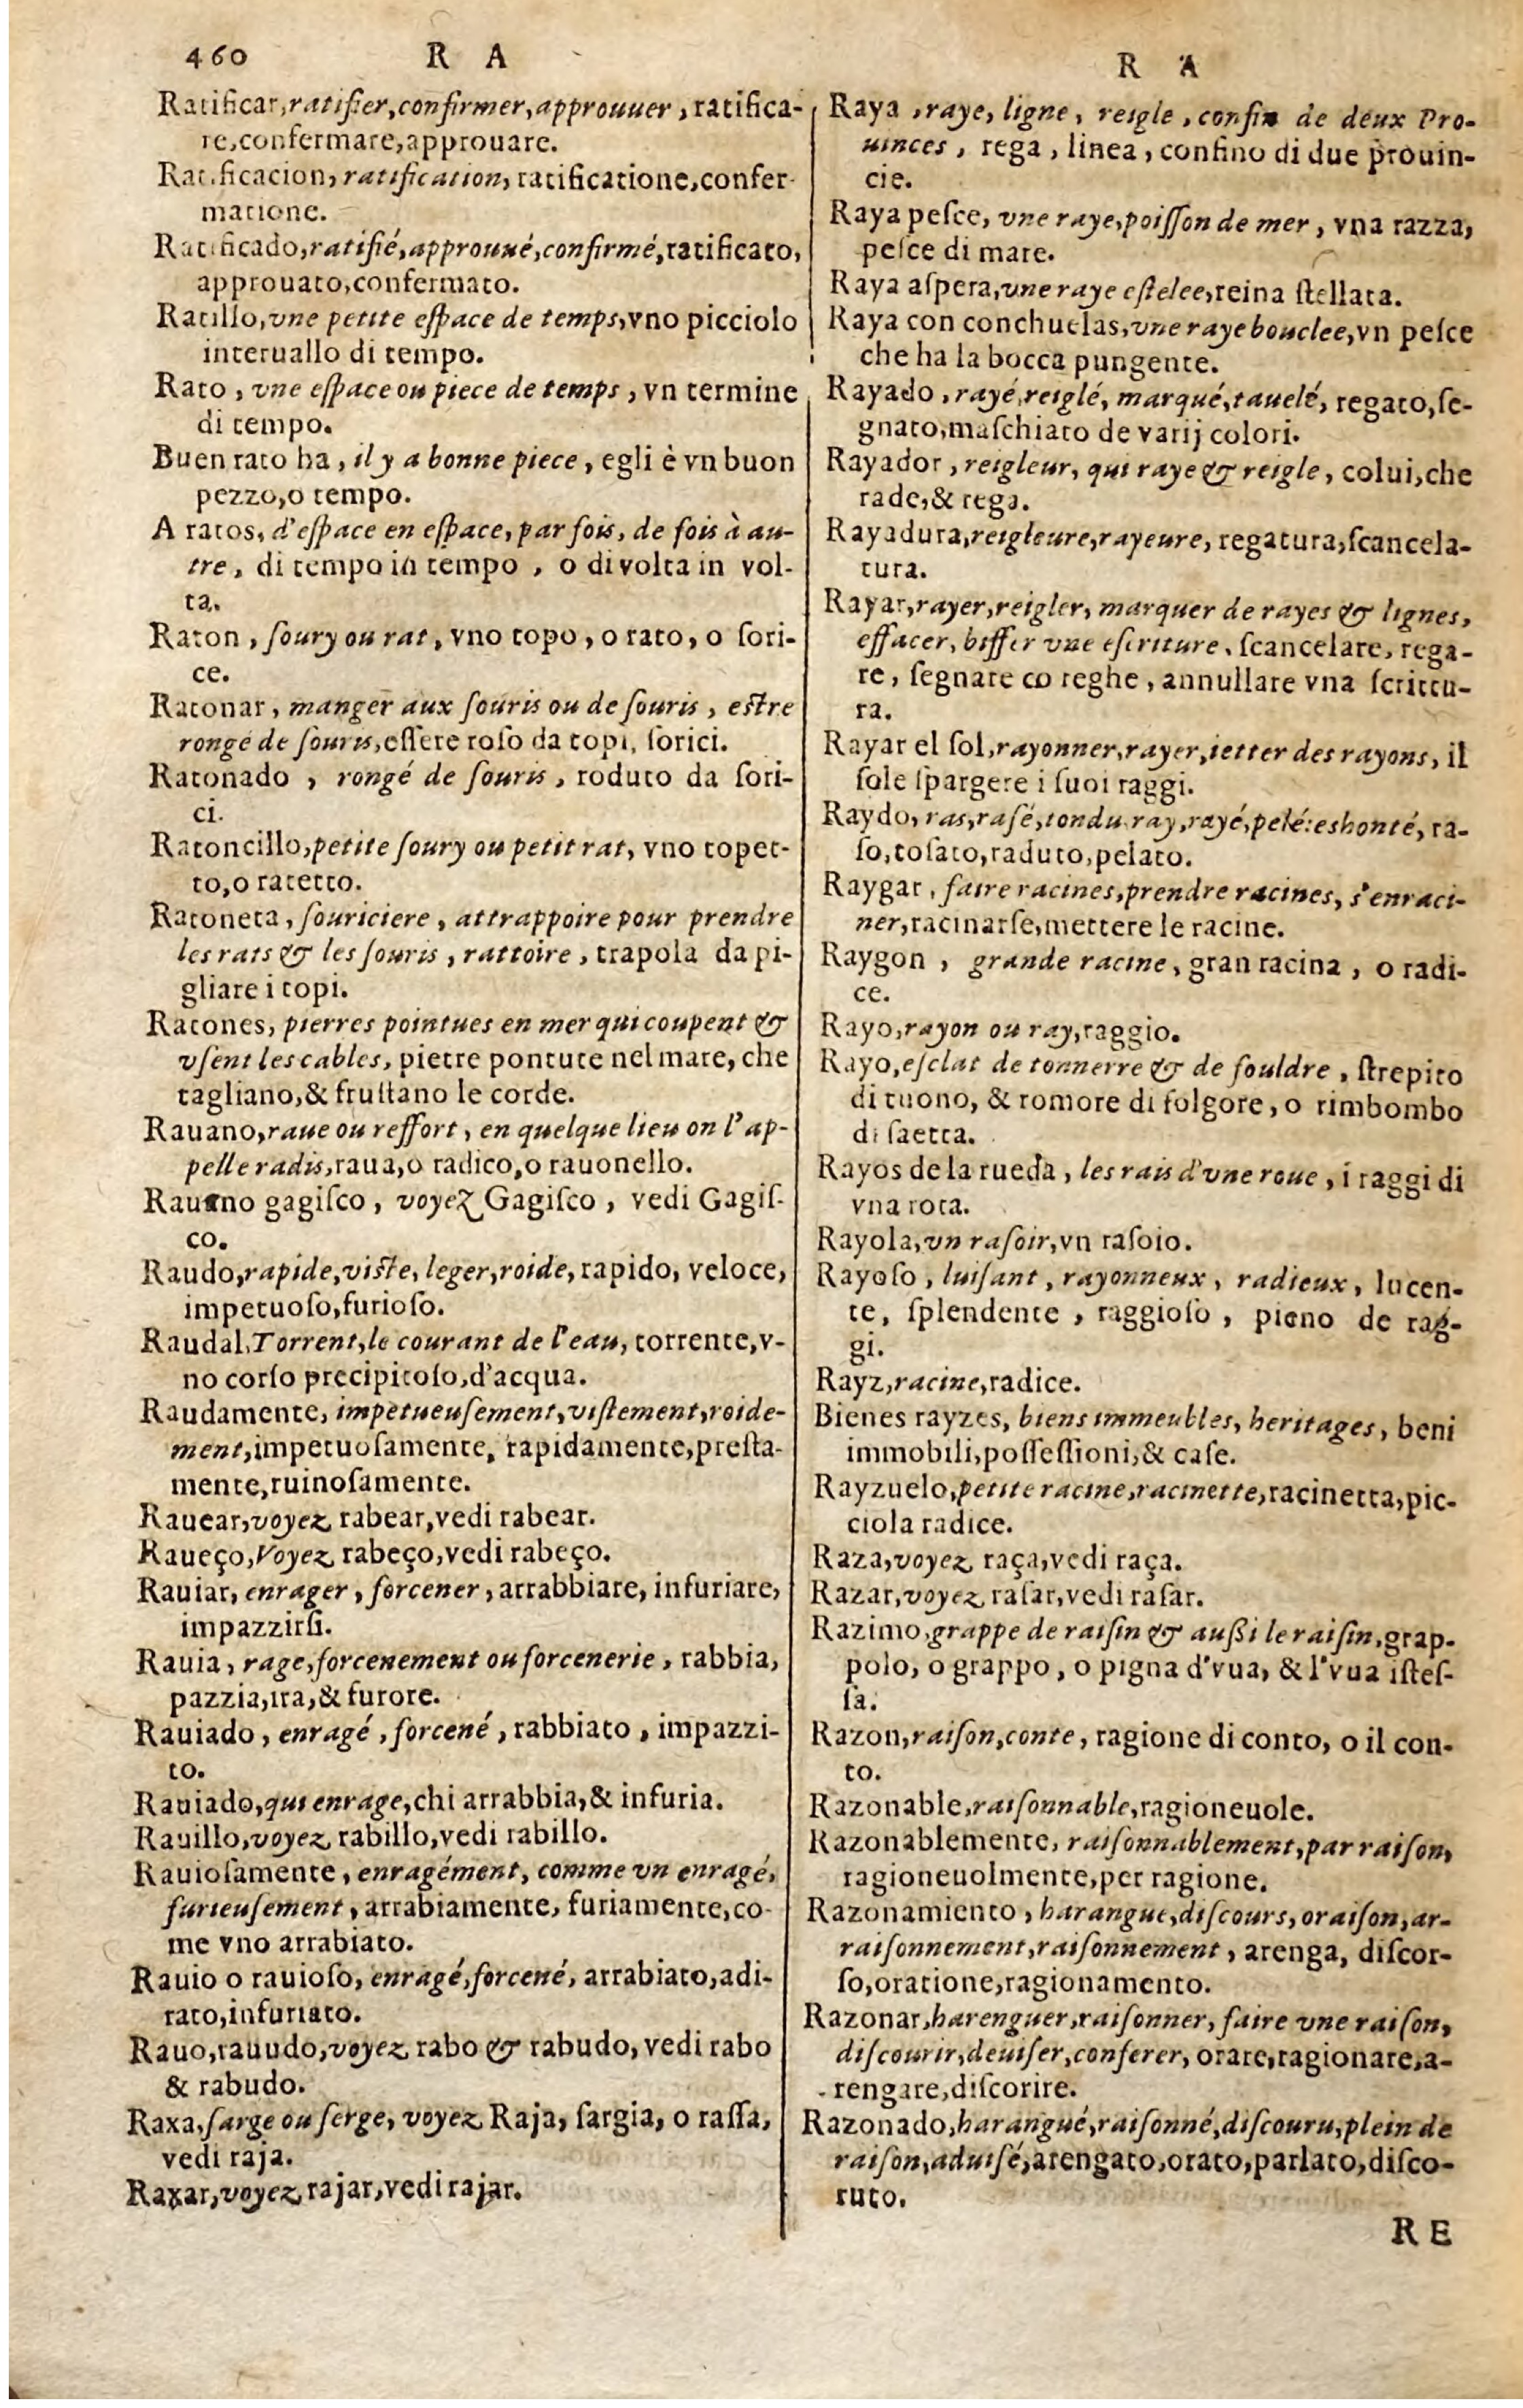 460 R A
Ratificar, ratifier, confirmer, approuuer, ratifica-
re, confermare, approuare.
Ratificacion, ratification, ratificatione, confer-
matione.
Ratificado, ratifié, approuué, confirmé, ratificato,
approuato, confermato.
Ratillo, vne petite eſpace de temps, vno picciolo
interuallo di tempo.
Rato, vne eſpace ou piece de temps, vn termine
di tempo.
Buen rato ha, il y a bonne piece, egli è vn buon
pezzo, o tempo.
A ratos, d'eſpace en eſpace, par fois, de fois à au-
tre, di tempo in tempo, o di volta in vol-
ta.
Raton, ſoury ou rat, vno topo, o rato, o ſori-
ce.
Ratonar, manger aux ſouris ou de ſouris, eſtre
rongé de ſouris, eſſere roſo da topi, ſorici.
Ratonado, rongé de ſouris, roduto da ſori-
ci.
Ratoncillo, petite ſoury ou petit rat, vno topet-
to, o ratetto.
Ratoneta, ſouriciere, attrappoire pour prendre
les rats & les ſouris, rattoire, trapola da pi-
gliare i topi.
Ratones, pierres pointues en mer qui coupent &
vſent les cables, pietre pontute nel mare, che
tagliano, & fruſtano le corde.
Rauano, raue ou reffort, en quelque lieu on l'ap-
pelle radis, raua, o radico, o rauonello.
Rauano gagiſco, voyez Gagiſco, vedi Gagiſ-
co.
Raudo, rapide, viſte, leger, roide, rapido, veloce,
impetuoſo, furioſo.
Raudal, Torrent, le courant de l'eau, torrente, v-
no corſo precipitoſo, d'acqua.
Raudamente, impetueuſement, viſtement, roide-
ment, impetuoſamente, rapidamente, preſta-
mente, ruinoſamente.
Rauear, voyez rabear, vedi rabear.
Raueço, Voyez rabeço, vedi rabeço.
Rauiar, enrager, forcener, arrabbiare, infuriare,
impazzirſi.
Rauia, rage, forcenement ou forcenerie, rabbia,
pazzia, ira, & furore.
Rauiado, enragé, forcené, rabbiato, impazzi-
to.
Rauiado, qui enrage, chi arrabbia, & infuria.
Rauillo, voyez rabillo, vedi rabillo.
Rauioſamente, enragément, comme vn enragé,
furieuſement, arrabiamente, furiamente, co-
me vno arrabiato.
Rauio o rauioſo, enragé, forcené, arrabiato, adi-
rato, infuriato.
Rauo, rauudo, voyez rabo & rabudo, vedi rabo
& rabudo.
Raxa, ſarge ou ſerge, voyez Raja, ſargia, o raſſa,
vedi raja.
Raxar, voyez rajar, vedi rajar.
R A
Raya, raye, ligne, reigle, confin de deux Pro-
uinces, rega, linea, confino di due prouin-
cie.
Raya peſce, vne raye, poiſſon de mer, vna razza,
peſce di mare.
Raya aſpera, vne raye eſtelee, reina ſtellata.
Raya con conchuelas, vne raye bouclee, vn peſce
che ha la bocca pungente.
Rayado, rayé, reiglé, marqué, tauelé, regato, ſe-
gnato, maſchiato de varij colori.
Rayador, reigleur, qui raye & reigle, colui, che
rade, & rega.
Rayadura, reigleure, rayeure, regatura, ſcancela-
tura.
Rayar, rayer, reigler, marquer de rayes & lignes,
effacer, biffer vne eſcriture, ſcancelare, rega-
re, ſegnare co reghe, annullare vna ſcrittu-
ra.
Rayar el ſol, rayonner, rayer, ietter des rayons, il
ſole ſpargere i ſuoi raggi.
Raydo, ras, raſé, tondu, ray, rayé, pelé: eshonté, ra-
ſo, toſato, raduto, pelato.
Raygar, faire racines, prendre racines, s'enraci-
ner, racinarſe, mettere le racine.
Raygon, grande racine, gran racina, o radi-
ce.
Rayo, rayon ou ray, raggio.
Rayo, eſclat de tonnerre & de fouldre, ſtrepito
di tuono, & romore di folgore, o rimbombo
di ſaetta.
Rayos de la rueda, les rais d'vne roue, i raggi di
vna rota.
Rayola, vn raſoir, vn raſoio.
Rayoſo, luiſant, rayonneux, radieux, lucen-
te, ſplendente, raggioſo, pieno de rag-
gi.
Rayz, racine, radice.
Bienes rayzes, biens immeubles, heritages, beni
immobili, poſſeſſioni, & caſe.
Rayzuelo, petite racine, racinette, racinetta, pic-
ciola radice.
Raza, voyez raça, vedi raça.
Razar, voyez raſar, vedi raſar.
Razimo, grappe de raiſin & außi le raiſin, grap-
polo, o grappo, o pigna d'vua, & l'vua iſteſ-
ſa.
Razon, raiſon, conte, ragione di conto, o il con-
to.
Razonable, raiſonnable, ragioneuole.
Razonablemente, raiſonnablement, par raiſon,
ragioneuolmente, per ragione.
Razonamiento, harangue, diſcours, oraiſon, ar-
raiſonnement, raiſonnement, arenga, diſcor-
ſo, oratione, ragionamento.
Razonar, harenguer, raiſonner, faire vne raiſon,
diſcourir, deuiſer, conferer, orare, ragionare, a-
rengare, diſcorire.
Razonado, harangué, raiſonné, diſcouru, plein de
raiſon, aduiſé, arengato, orato, parlato, diſco-
ruto.
R E